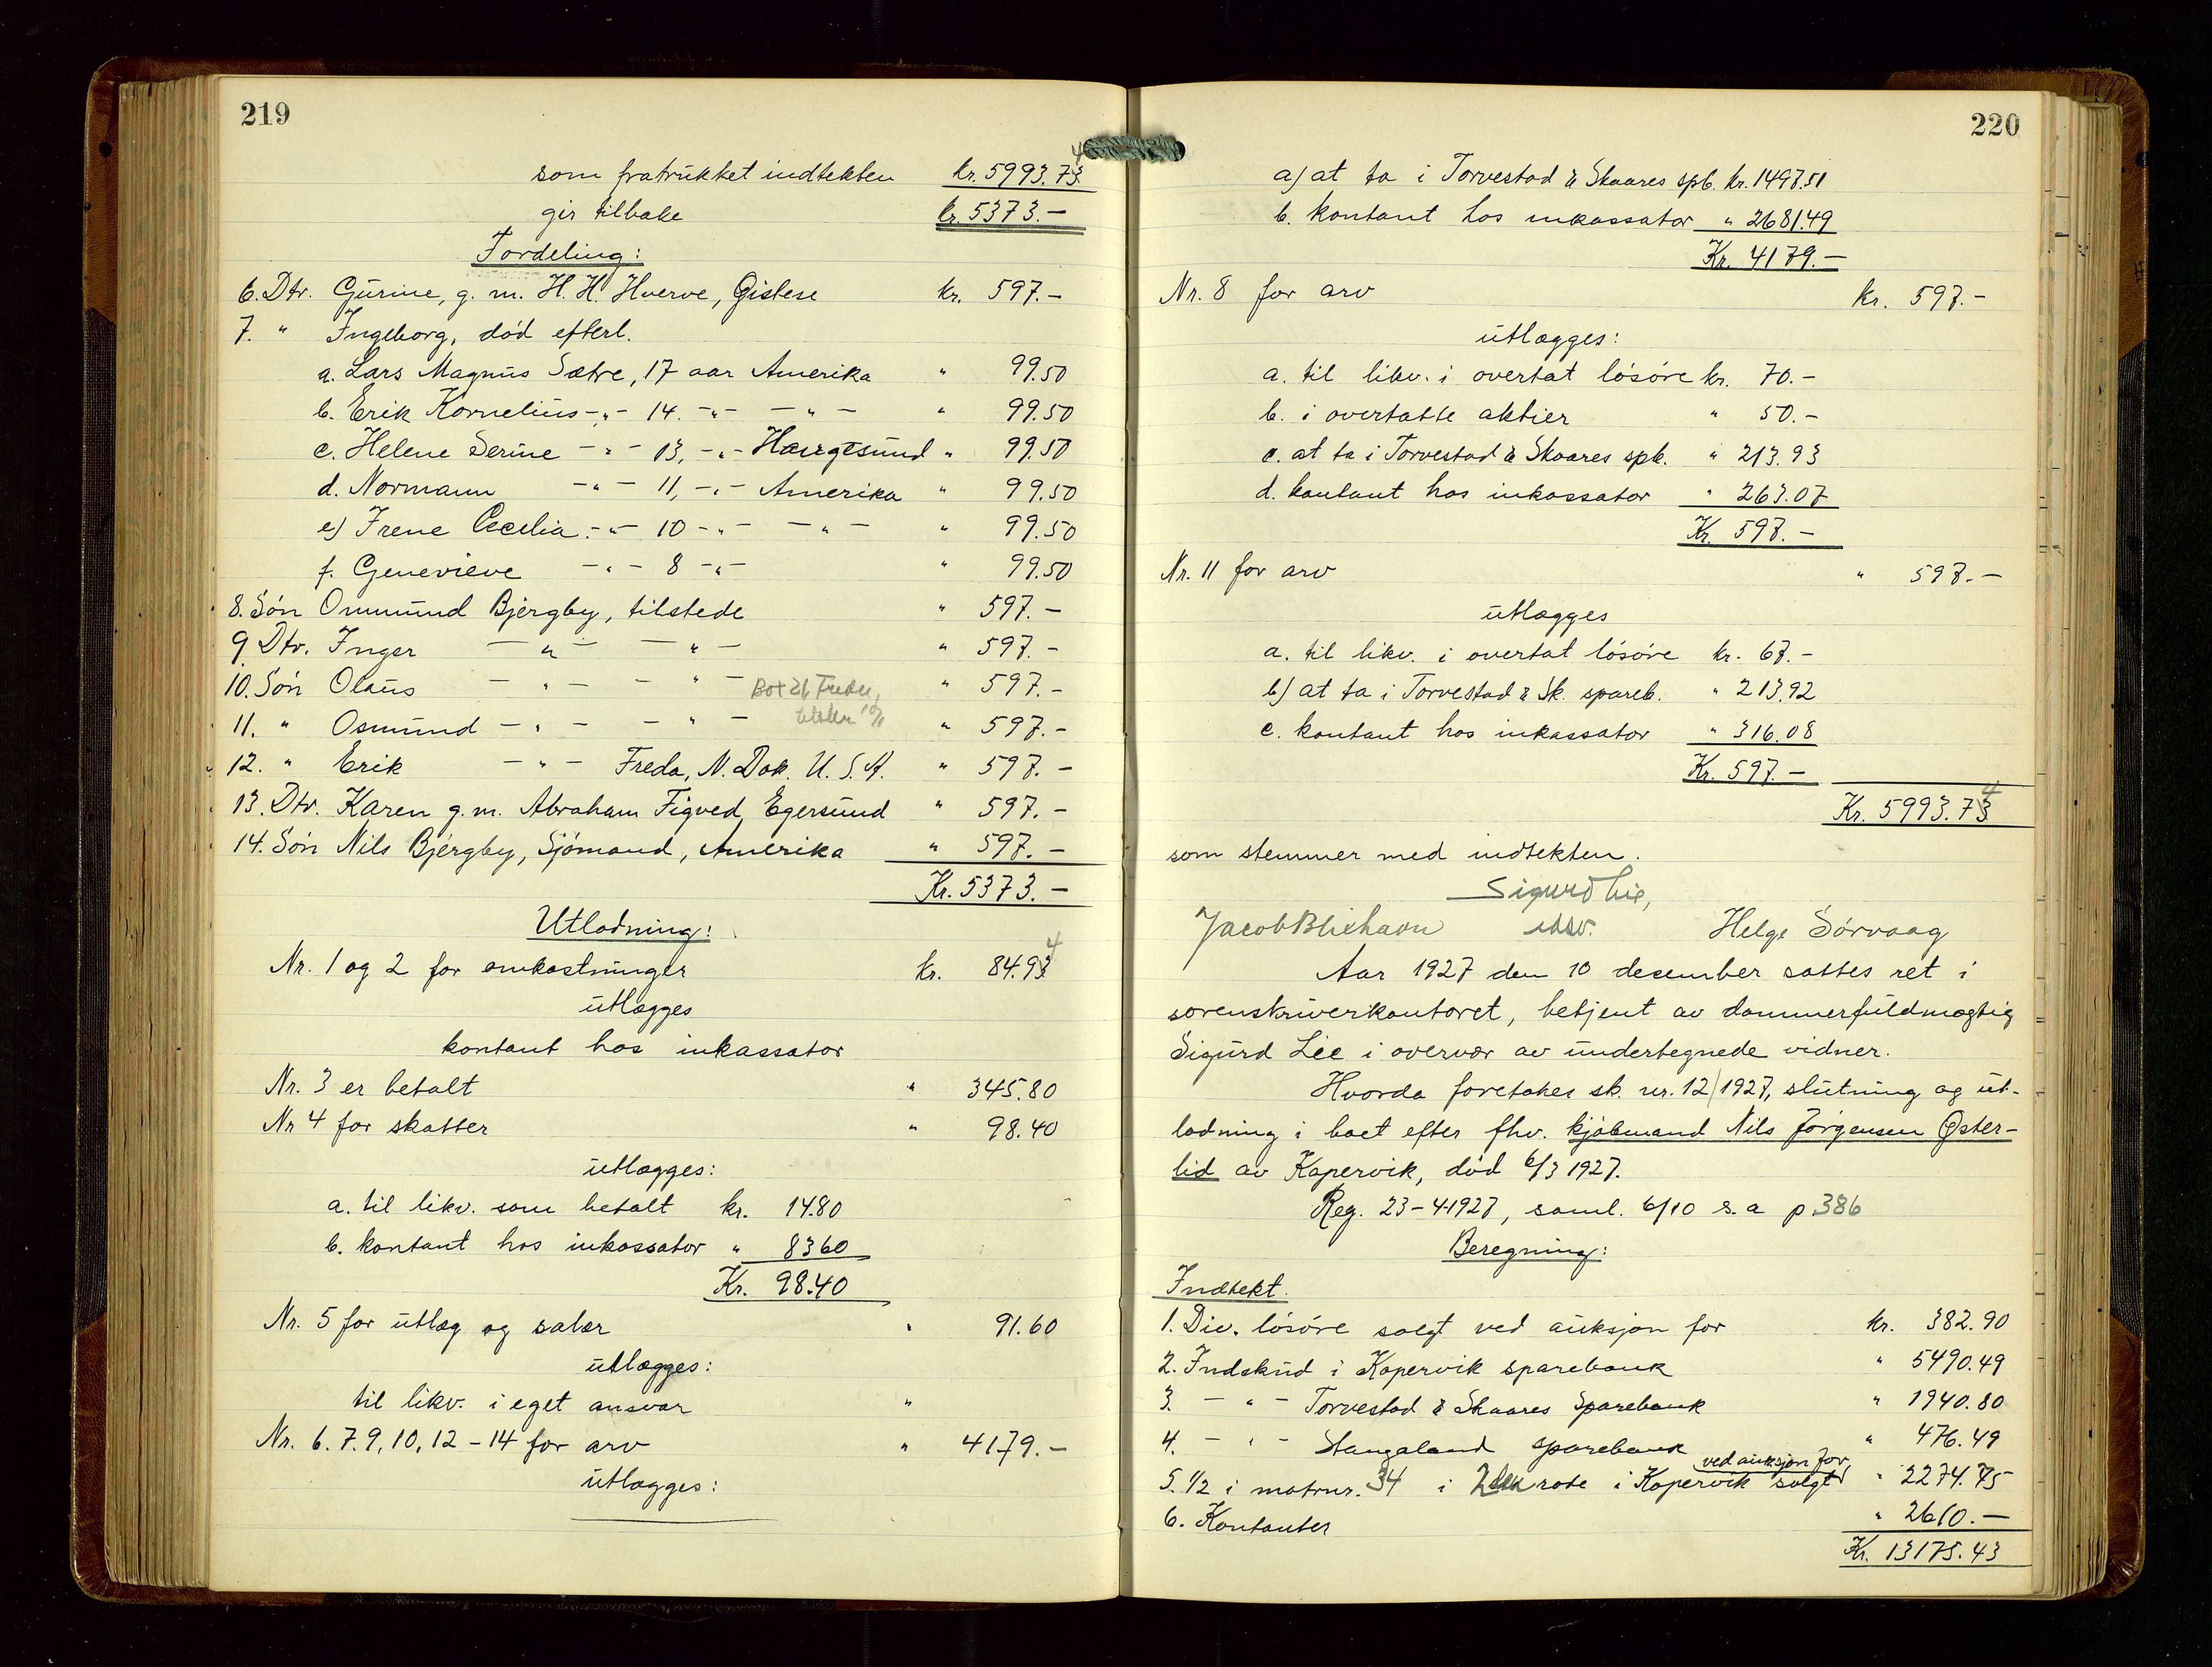 219
som fratrukket indtekten kr. 5993.74
gir tilbake kr. 5373.-
Fordeling:
6. Dtr. Gurine, g. m. H. H. Hverve, Gistese kr. 597.-
7. " Ingeborg, död efterl.
a. Lars Magnus Sætre, 17 aar Amerika " 99.50
b. Erik Kornelius -"- 14. -"- -"- " 99.50
c. Helene Serine -"- 13, -"- Haugesund " 99.50
d. Normann -"- 11, -"- Amerika " 99.50
e) Irene Cecelia. -"- 10 -"- -"- " 99.50
f. Genevieve -"- 8 -"- " 99.50
8. Sön Ommund Bjergby, tilstede " 597.-
9 Dtr. Inger -"- -"- " 597.-
10. Sön Olaus -"- -"- Box 21, Freda, " 597.-
11. " Osmund -"- -"- " 597.-
12. " Erik -"- Freda, N. Dak. U. S. A. " 597.-
13. Dtr. Karen g. m. Abraham Figved, Egersund " 597.-
14. Sön Nils Bjergby, Sjömand, Amerika " 597.-
Kr. 5373.-
Utlodning:
Nr. 1 og 2 for omkostninger kr. 84.94
utlægges
kontant hos inkassator
Nr. 3 er betalt " 345.80
Nr 4 for skatter " 98.40
utlægges:
a. til likv. som betalt kr. 14.80
b. kontant hos inkassator " 8360
Kr. 98.40
Nr. 5 for utlæg og salær " 91.60
utlægges:
til likv. i eget ansvar "
Nr. 6. 7. 9, 10, 12 - 14 for arv " 4179.-
utlægges:
220
a) at ta i Torvestad & Skaares spb. kr. 1497.51
b. kontant hos inkassator " 2681.49
Kr. 4179.-
Nr. 8 for arv kr. 597.-
utlægges:
a. til likv. i overtat lösöre kr. 70.-
b. i overtatte aktier " 50.-
c. at ta i Torvestad & Skaares spb. " 213.93
d. kontant hos inkassator " 263.07
Kr. 597.-
Nr. 11 for arv " 597.-
utlægges
a. til likv. i overtat lösöre kr. 67.-
b) at ta i Torvestad & Sk. spareb. " 213.92
c. kontant hos inkassator " 316.08
Kr. 597.-
Kr. 5993.74
som stemmer med indtekten.
Sigurd Lie,
Jacob Bliehavn Helge Sörvaag
Aar 1927 den 10 desember sattes ret i
sorenskriverkontoret, betjent av dommerfuldmægtig
Sigurd Lie i overvær av undertegnede vidner.
Hvorda foretokes sk. nr. 12/1927, slutning og ut-
lodning i boet efter fhv. kjöbmand Nils Jörgensen Öster-
lid av Kopervik, död 6/3 1927.
Reg. 23-4-1927, saml. 6/10 s. a p 386
Beregning:
Indtekt.
1. Div. lösöre solgt ved auksjon for kr. 382.90
2. Indskud i Kopervik sparebank " 5490.49
3. -"- Torvestad & Skaares Sparebank " 1940.80
4. -"- Stangaland sparebank " 476.49
5. 1/2 i matrnr. 34 i 2den rode i Kopervik solgt ved auksjon for " 2274.75
6. Kontanter " 2610.-
Kr. 13175.43